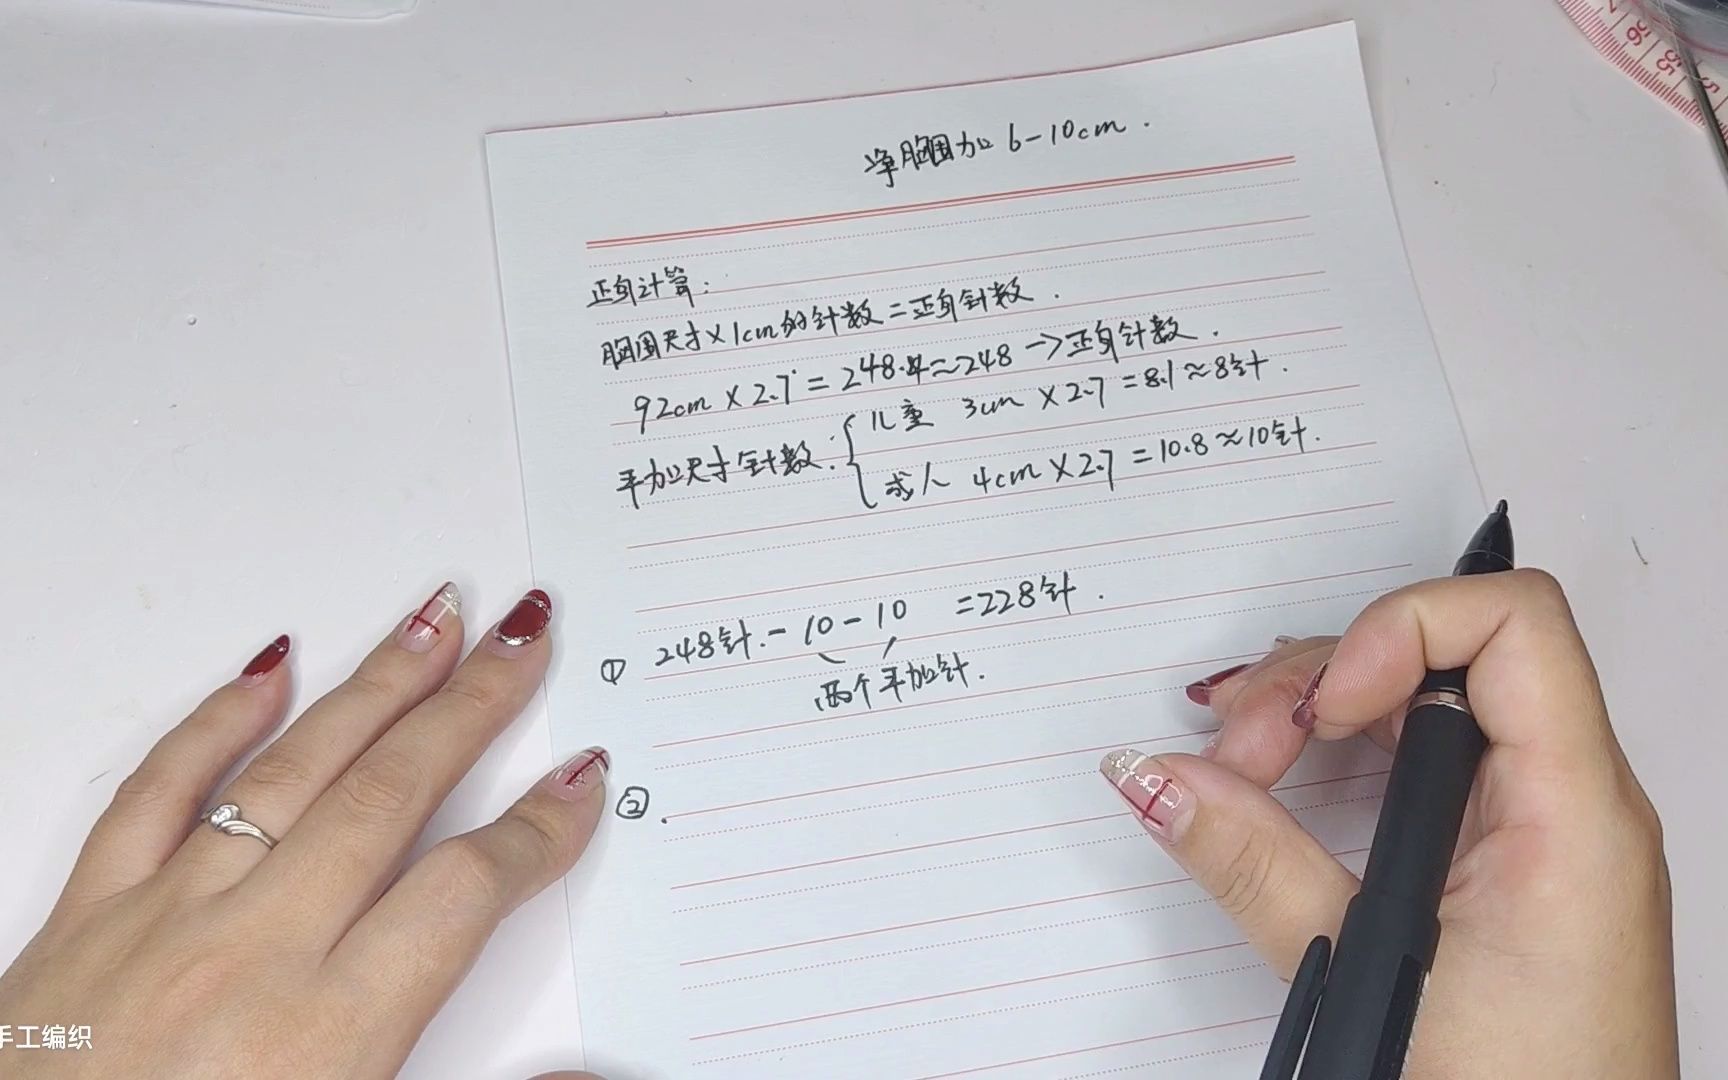 净胸围加 6-10cm.
正身计算:
胸围尺寸×1cm的针数=正身针数.
92cm×2.7=248.4≈248→正身针数.
平加尺寸针数:
儿童 3cm×2.7=8.1≈8针.
成人 4cm×2.7=10.8≈10针.
① 248针.-10-10 =228针.
两个平加针.
②.
手工编织
96
95